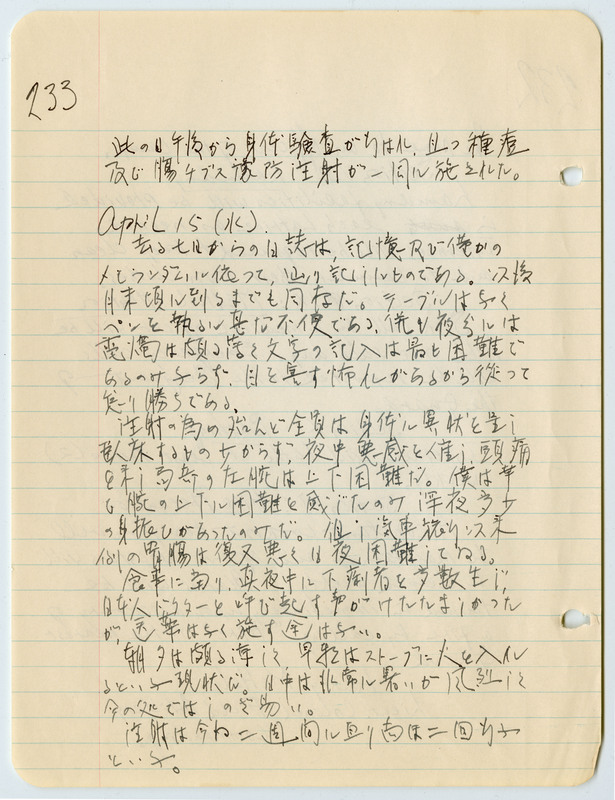 233
此の日午後から身体驗査が行はれ、且つ種痘
及び腸チブス豫防注射が一同に施された。
April 15 (水).
去る七日からの日誌は、記憶及び僅かの
メモランダムに従って、追り記したものである。以後
月末頃に到るまでも同様だ。テーブルは無く
ペンを執るに甚だ不便である、併も夜分には
電燭は頗る薄く文字の記入は最も困難で
あるのみならず、目を害す怖れがあるから従って
怠り勝ちである。
注射の為め殆んど全員は身体に異状を呈し
臥床するもの少からず、夜中悪感を催し、頭痛
を来し局部の左腕は上下困難だ。僕は単
に腕の上下に困難を感じたのみ 深夜多少
の身振ひがあったのみだ。但し汽車旅行以来
例の胃腸は復又悪く日夜困難してゐる。
食事に当り、真夜中に下痢者を多数生じ、
日本人ドクターを呼び起す声がけたたましかった
が、医薬は無く施す術は無い。
朝夕は頗る薄く、早朝はストーブに火を入れ
るといふ現状だ。日中は非常に暑いが風烈しく
今の処ではしのぎ易い。
注射は今ね二週間に亘り尚ほ二回行ふ
といふ。